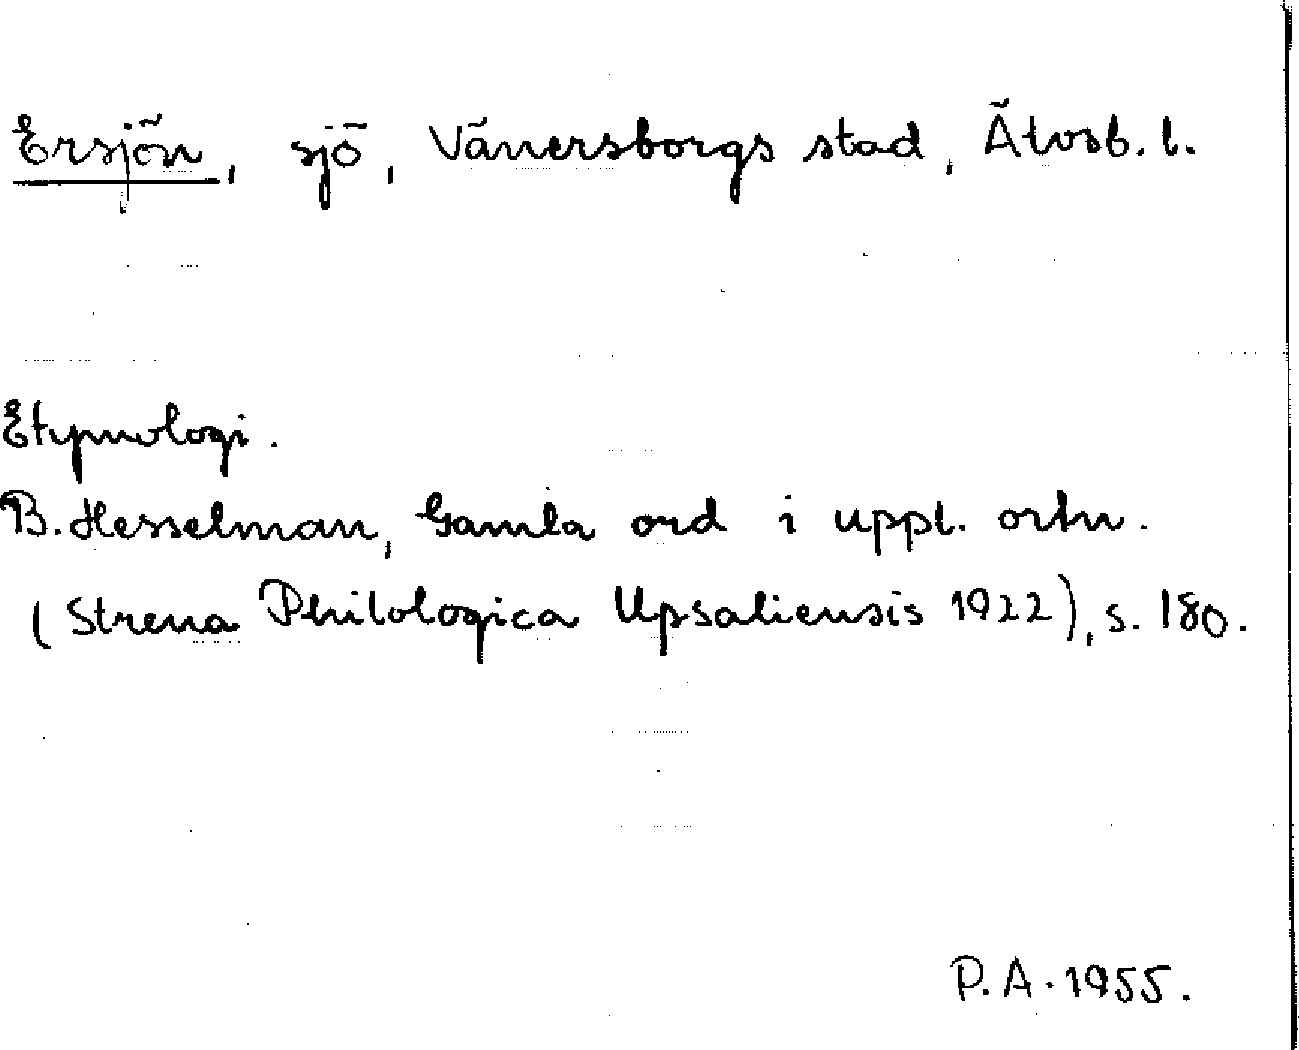 Ersjön, sjö, Vänersborgs stad, Älvsb. l.
Etymologi.
B. Hesselman, Gamla ord i uppl. ortn.
(Strena Philologica Upsaliensis 1922), s. 180.
P. A. 1955.